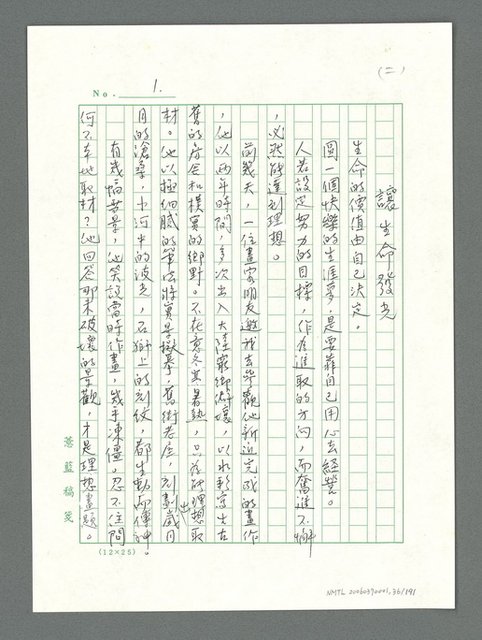 (二)
No. 1.
讓生命發光
生命的價值由自己決定。
圓一個快樂的生涯夢，是要靠自己用心去經營。
人若設定努力的目標，作為進取的方向，而奮進不懈
，必然能達到理想。
前幾天，一位畫家朋友邀我去參觀他新近完成的畫作
，他以兩年時間，多次出入大陸窮鄉僻壤，以水彩寫生古
舊的房舍和樸實的鄉野。不在意冬寒暑熱，只為能理想取
材。他以極細膩的筆法將實景擬摹，舊街老店，刻劃出歲月
月的滄桑，小河中的波光，石獅上的刻紋，都生動而傳神。
有幾幅雪景，他笑說當時作畫，幾乎凍僵。忍不住問
何不本地取材？他回答那未破壞的景觀，才是理想畫題。
薏藍稿箋
(12×25)
NMTL 20060390001,36/191